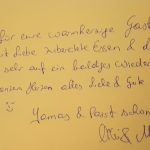 für eure warmherzige Gast
it Liebe zubereitete Essen & d
sehr auf ein baldiges Wieder
enzen Herzen alles Liebe & Gute
Yamas & Passt schon